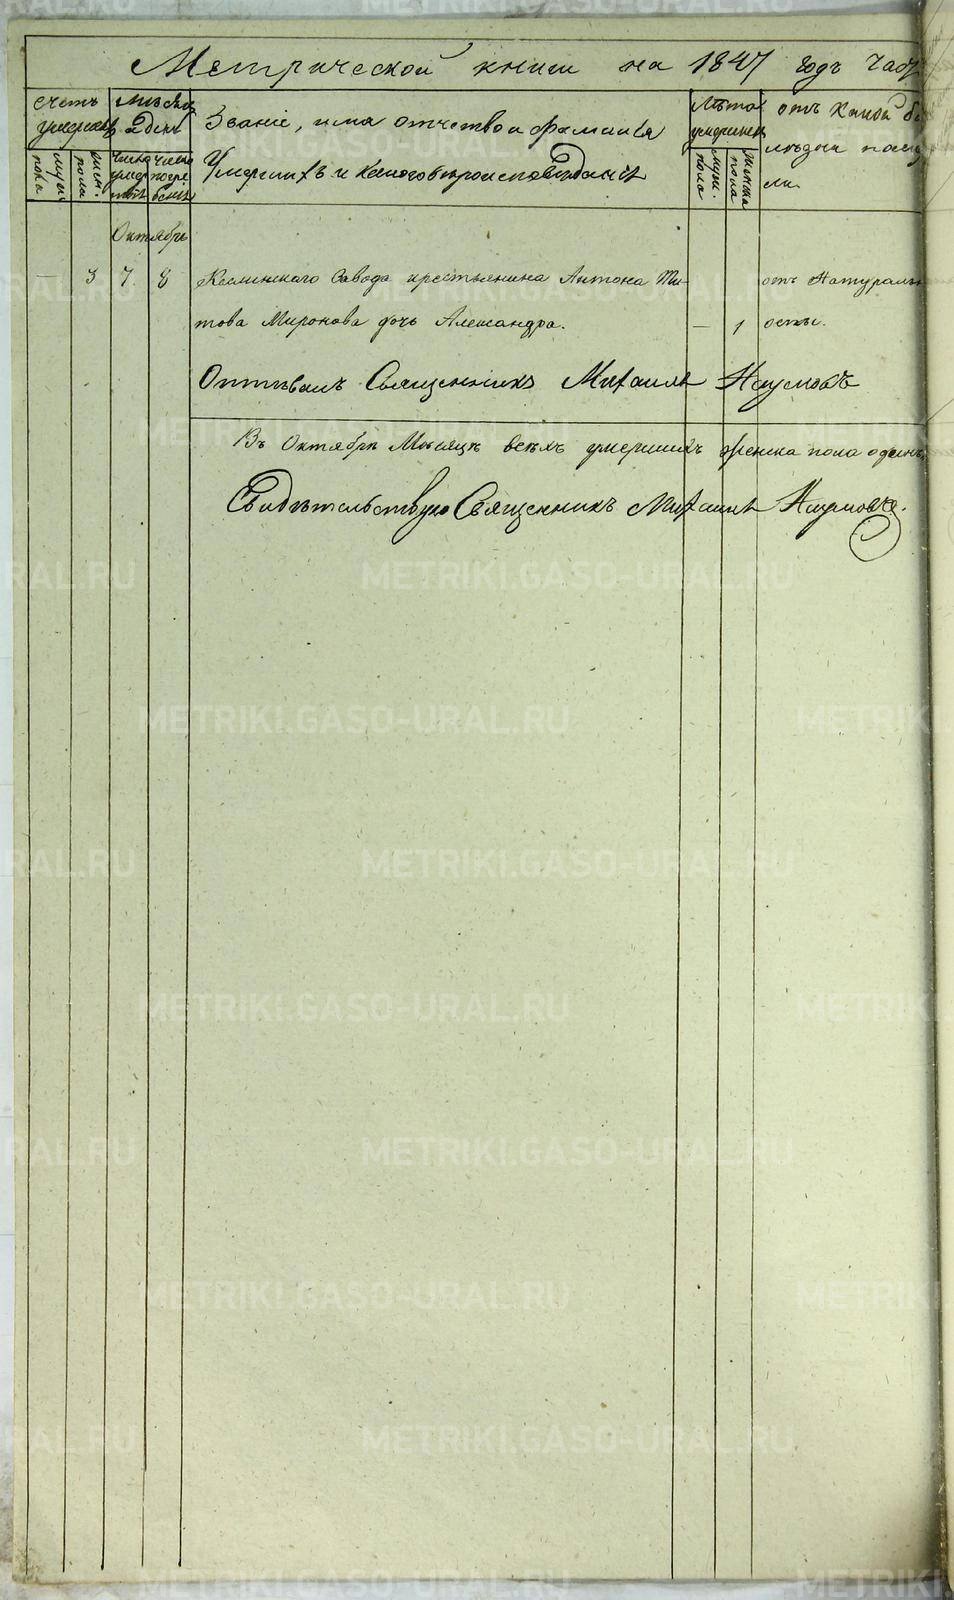 Метрической книги на 1847 годъ часть
Счетъ умершихъ
Мѣсяцъ и день
Званіе, имя отчество и фамилія
Умершихъ и какого вѣроисповѣданія
Лѣта умершихъ
отъ какой бо
лѣзни
муж. пола
жен. пола
Число смерти
Число погребенія
муж. пола
женска пола
Октябрь
— 3 7. 8 Каслинскаго Завода крестьянина Антона Ти- отъ Натураль
това Миронова дочь Александра. — 1 оспы.
Отпѣвалъ Священникъ Михаилъ Наумовъ
Въ Октябрѣ Мѣсяцѣ всѣхъ умершихъ женска пола одинъ
Свидѣтельствую Священникъ Михаилъ Наумовъ.
METRIKI.GASO-URAL.RU